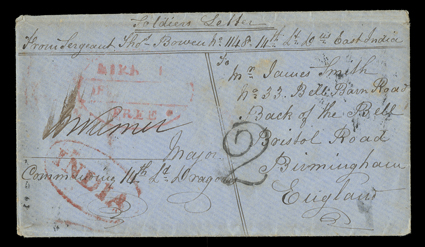 Soldiers Letter
From Sergeant Thos. Bowen No. 1148. 14th Lt. Dns. East India
To
Mr. James Smith
No 33. Bell Barn Road
Back of the Bell
Bristol Road
Birmingham
England
FREE
2
Major
Commanding 14th Lt. Dragoons
INDIA